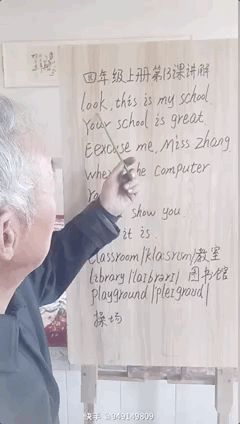 四年级上册第13课讲解
look, this is my school.
Your school is great.
Eexcuse me, Miss Zhang
whe he computer
show you.
it is.
classroom/klasrum/教室
library/laibrəri/ 图书馆
playground/pleigraud/
操场
快手 949149809